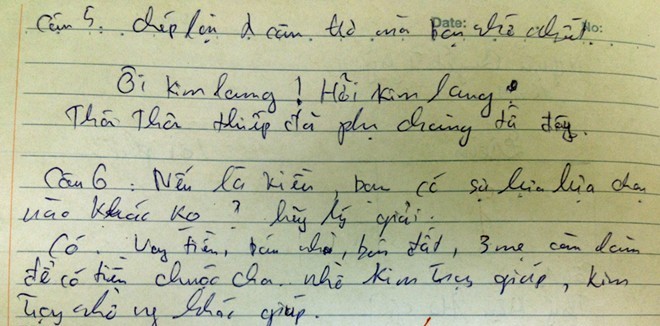 Câu 5. chép lại 2 câu thơ mà bạn nhớ nhất. Date: No:
Ôi kim lang! Hỡi kim lang!
Thôi Thôi thiếp đã phụ chàng từ đây.
Câu 6: Nếu là kiều, bạn có sự lựa lựa chọn
nào khác ko? hãy lý giải.
Có. Vay tiền, bán nhà, bán đất, 3 mẹ con làm
để có tiền chuộc cha. nhờ Kim Trọng giúp, kim
Trọng nhờ ng khác giúp.